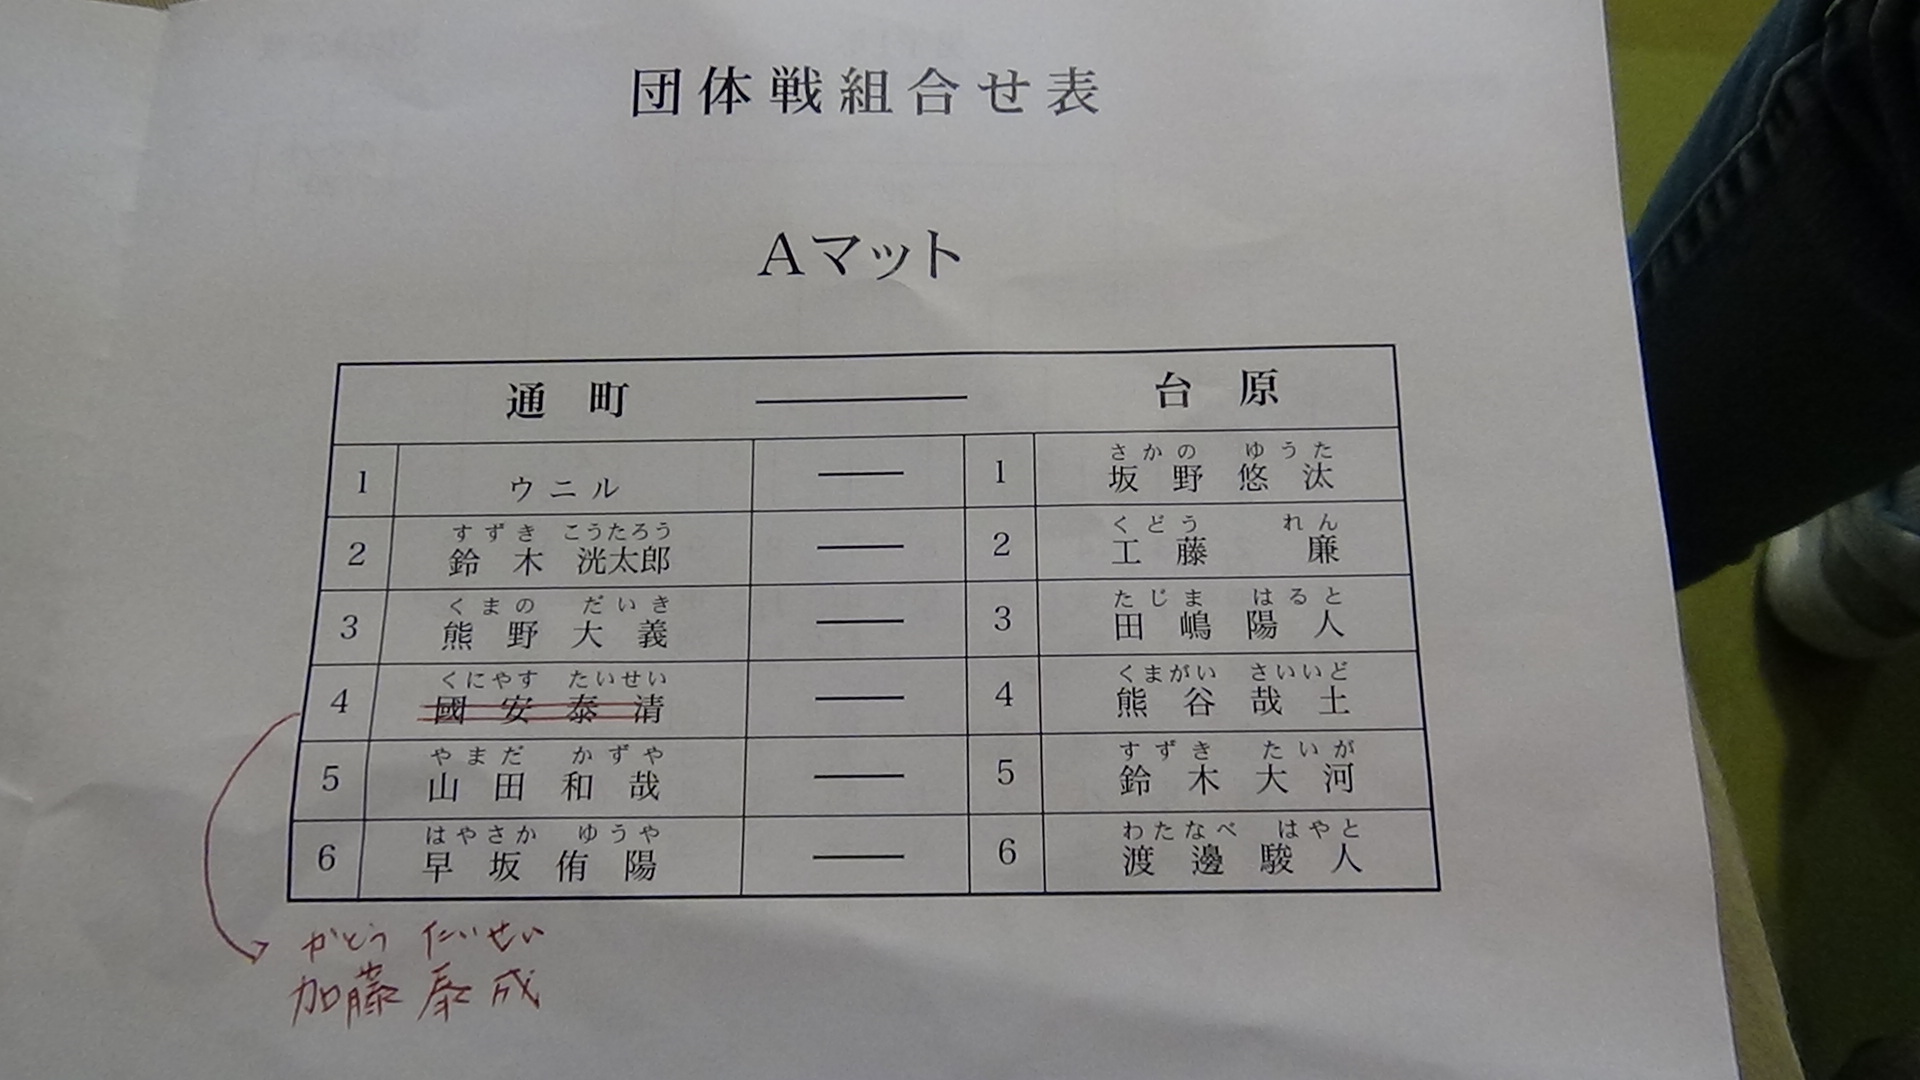 団体戦組合せ表
Aマット
通町 ―― 台原
1 ウニル ― 1 さかの ゆうた
坂野悠汰
すずき こうたろう くどう れん
2 鈴木洸太郎 ― 2 工藤廉
くまの だいき たじま はると
3 熊野大義 ― 3 田嶋陽人
くにやす たいせい くまがい さいいど
4 國安泰清 ― 4 熊谷哉土
やまだ かずや すずき たいが
5 山田和哉 ― 5 鈴木大河
はやさか ゆうや わたなべ はやと
6 早坂侑陽 ― 6 渡邊駿人
かとう たいせい
加藤泰成